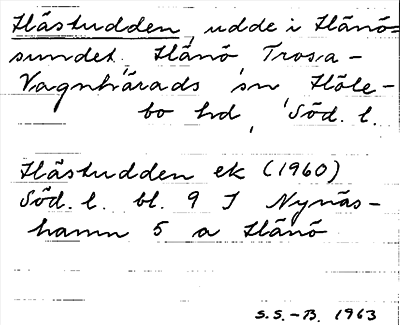 Hästudden, udde i Hånö=
sundet, Hånö, Trosa-
Vagnhärads sn, Höle-
bo hd, Söd. l.
Hästudden ek (1960)
Söd. l. bl. 9 I Nynäs-
hamn 5 a Hånö
S.S.-B. 1963